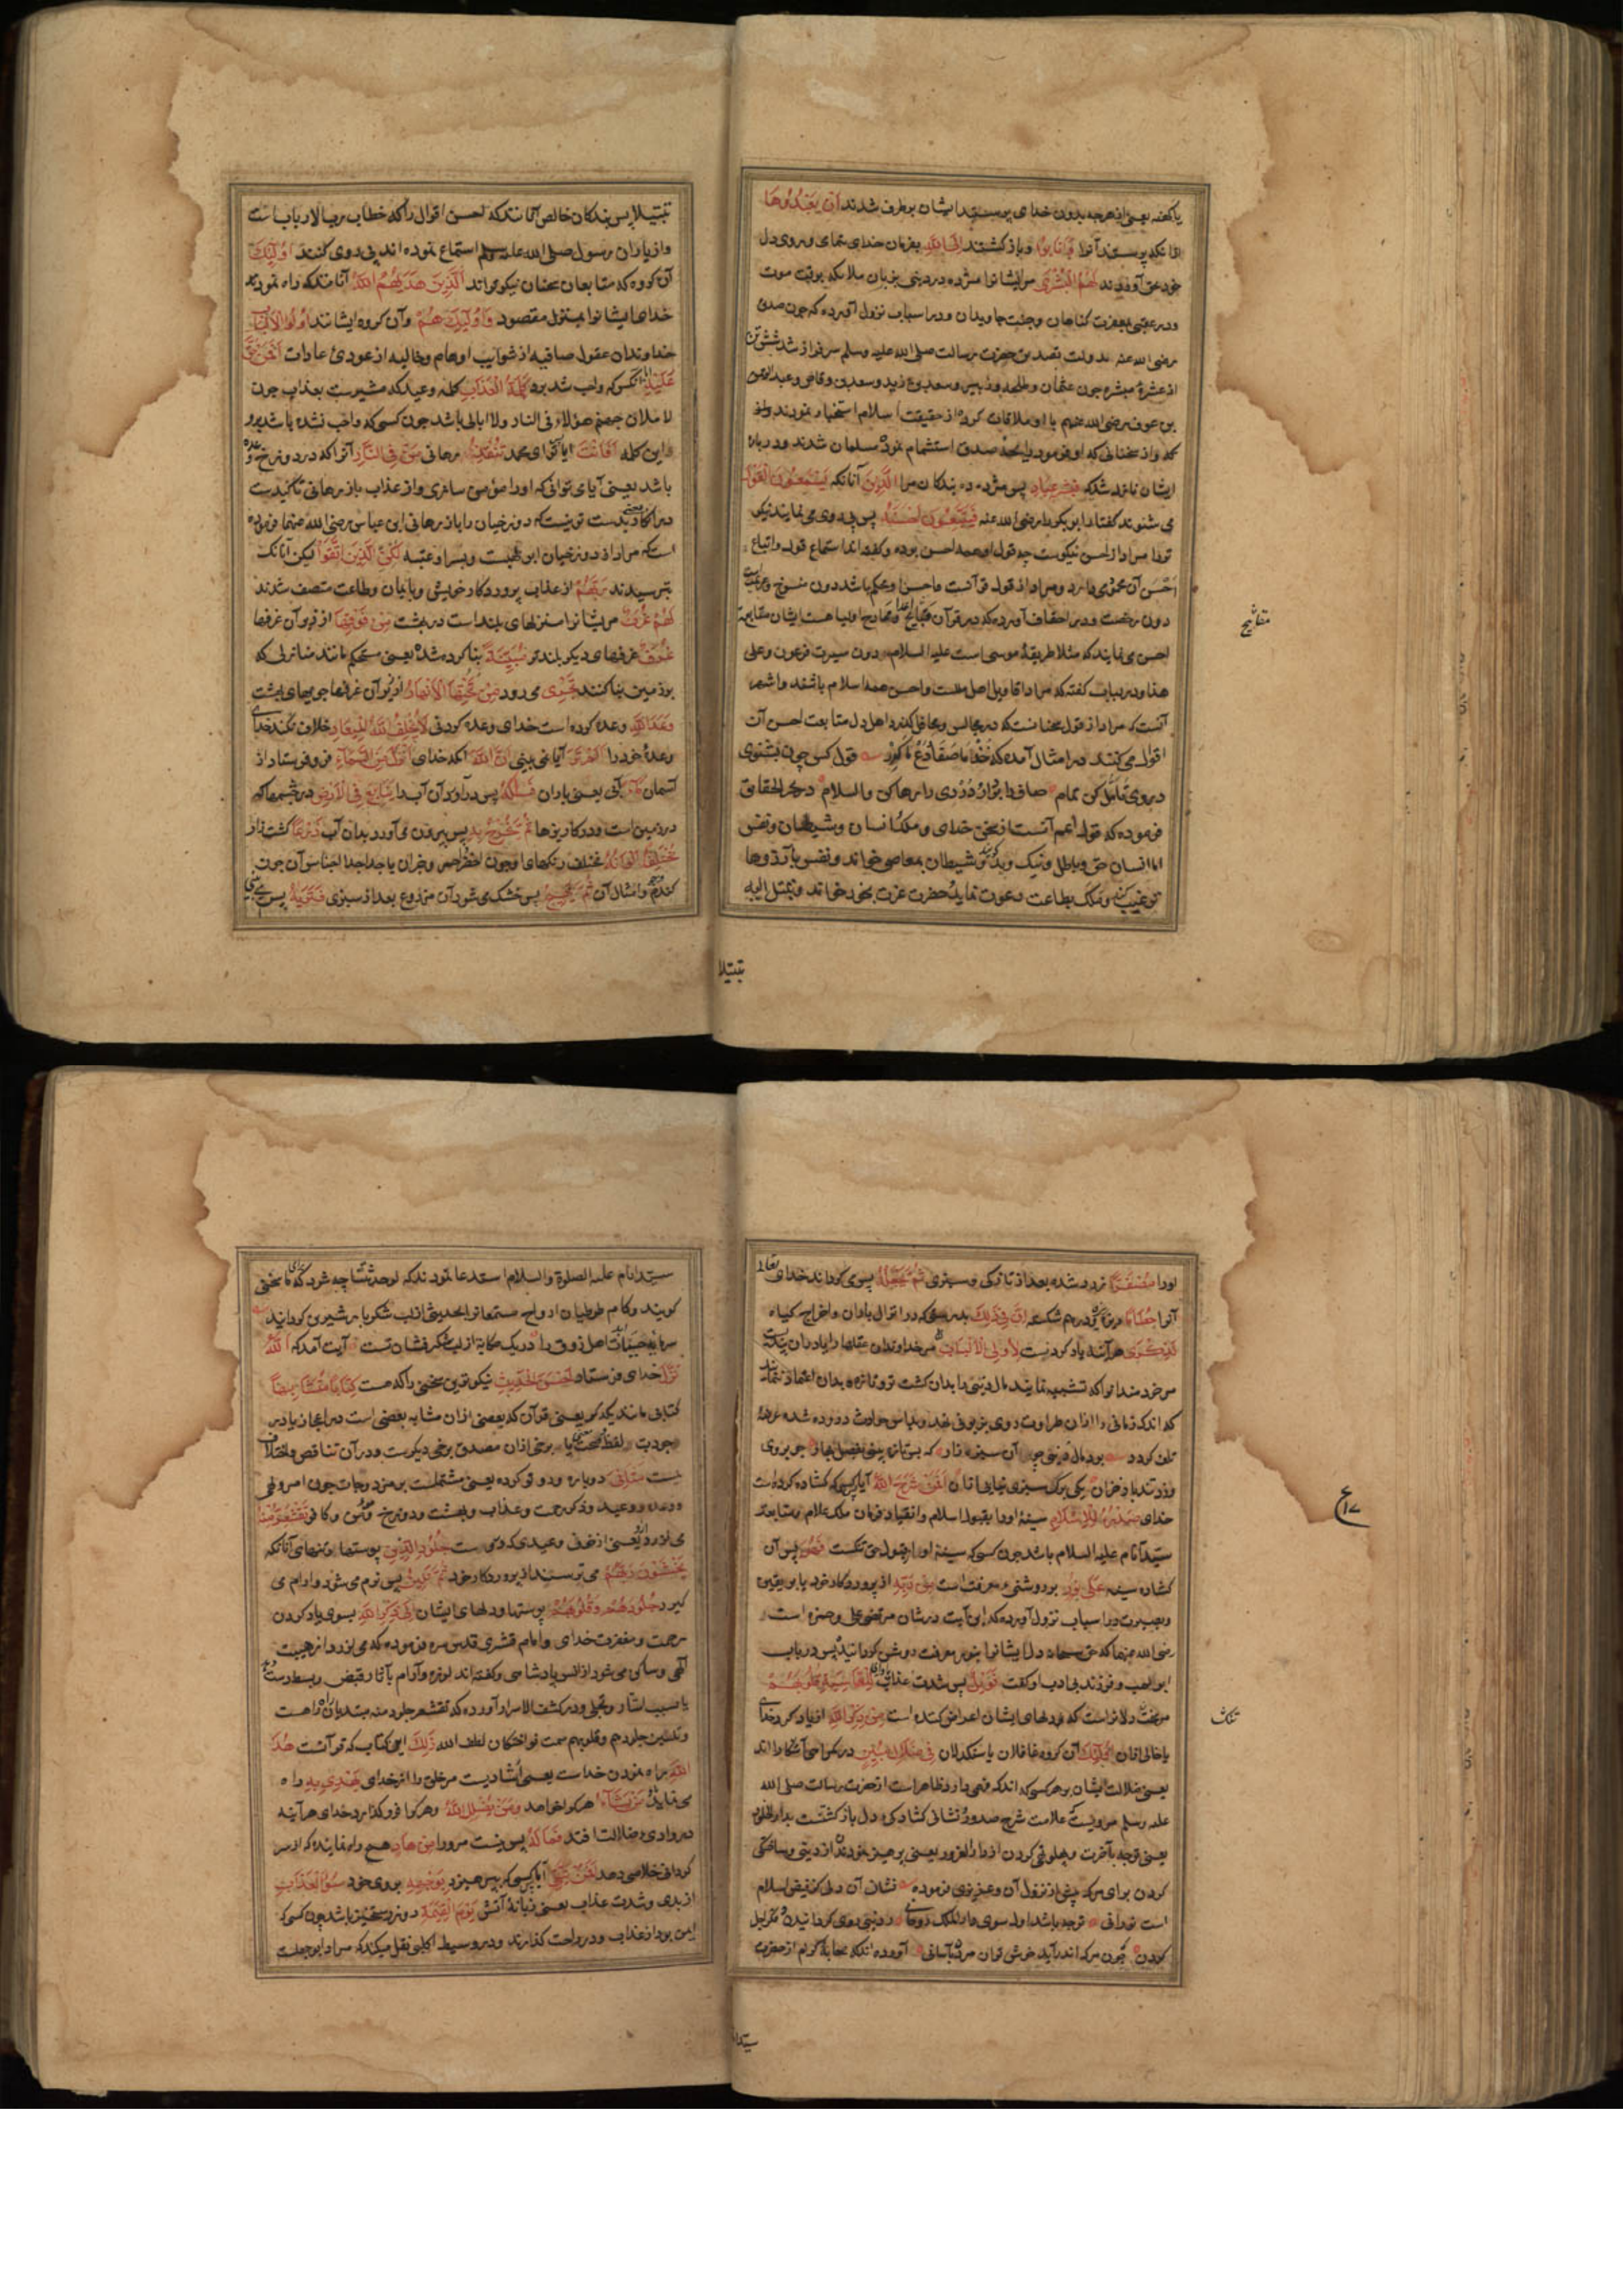 یا کهنه یعنی از هرچه بدون خدای پرستند ایشان برطرف شدند اَنْ یَعْبُدُوهَا
از آنکه پرستند آنرا وَاَنَابُوا و باز کشتند اِلَی اللّٰهِ بفرمان خدای تعالی و روی دل
خود بحق آوردند لَهُمُ الْبُشْرَی مرایشانرا مژده در دنیی بزبان ملائکه بوقت موت
و در عقبی بمغفرت کناهان و جنت جاویدان و در اسباب نزول آورده که چون صدیق
رضی الله عنه بدولت تصدیق حضرت رسالت صلی الله علیه وسلم سرفراز شد شش تن
از عشرهٔ مبشره چون عثمان و طلحه و زبیر و سعد بن زید و سعد بن وقاص و عبدالرحمن
بن عوف رضی الله عنهم با او ملاقات کرده از حقیقت اسلام استخبار نمودند و او
که و از سخنانی که او فرمود رایحهٔ صدق استشمام نموده مسلمان شدند و در بارهٔ
ایشان نازل شد که فَبَشِّرْ عِبَادِ پس مژده ده بندکان مرا اَلَّذِینَ آنانکه یَسْتَمِعُونَ الْقَوْلَ
می شنوند کفتار ابوبکر را رضی الله عنه فَیَتَّبِعُونَ اَحْسَنَهُ پس پی روی می نمایند نیکو
تر را مراد از احسن نیکوست چه قول او همه احسن بوده و کفته اند استماع قول و اتباع
اَحْسَن آن عمومی دارد و مراد از قول قرآنست و احسن او محکم باشد دون منسوخ و عزیمت
دون رخصت و در احقاف آورده که در قرآن قبایح اعدا و ممادح اولیا هست ایشان متابعت
احسن می نمایند که مثلا طریقهٔ موسی است علیه السلام دون سیرت فرعون و علی
هذا و در لباب کفته که مراد اقاویل اهل ملل است و احسن همه اسلام باشد و اشهر
آنست که مراد از قول سخنانست که در مجالس و محافل کذرد اهل دل متابعت احسن آن
اقوال می کنند و در امثال آمده که خُذْ مَا صَفَا وَدَعْ مَا کَدِرَ قول کس چون بشنوی
در وی تامّل کن تمام صاف را بردار و دُردی را رها کن والسلام در بحر الحقایق
فرموده که قول اعم آنست از سخن خدای و ملک و انسان و شیطان و نفس
اما انسان حق و باطل و نیک و بد کوید و شیطان بمعاصی خواند و نفس بآرزوها
ترغیب کند و ملک بطاعت دعوت نماید و حضرت عزت بخود خواند وتبتل الیه
تبتیلا
مفاتیح
تبتیلا پس بندکان خالص آنانند که احسن اقوال را که خطاب رب الارباب است
و از یاران رسول صلی الله علیه وسلم استماع نموده اند پی روی کنند اُولٰئِکَ
آن کروه که متابعان سخنان نیکوتراند اَلَّذِینَ هَدٰیهُمُ اللّٰهُ آنانند که راه نمود
خدای ایشانرا بمنزل مقصود وَاُولٰئِکَ هُمْ و آن کروه ایشانند اُولُوا الْاَلْبَابِ
خداوندان عقول صافیه از شوایب اوهام و خالیه از عودی عادات اَفَمَنْ حَقَّ
عَلَیْهِ آیا آنکس که واجب شد برو کَلِمَةُ الْعَذَابِ کلمه وعید که مشیرست بعذاب چون
لاملان جهنم هؤلاء فی النار ولا ابالی باشد چون کسی که واجب نشده باشد برو
و این کلمه اَفَاَنْتَ آیا تو ای محمد تُنْقِذُ رهانی مَنْ فِی النَّارِ آنرا که در دوزخ
باشد یعنی آیا می توانی که او را مؤمن سازی و از عذاب باز رهانی تاکیدست
در انکار یعنی بدست تو نیست که دوزخیان را باز رهانی ابن عباس رضی الله عنهما فرموده
است که مراد از دوزخیان ابو لهبست و پسر او عتبه لٰکِنِ الَّذِینَ اتَّقَوْا لیکن آنانکه
بترسیدند رَبَّهُمْ از عذاب پروردکار خویش و بایمان و طاعت متصف شدند
لَهُمْ غُرَفٌ مریشانراست منزلهای بلند است در بهشت مِنْ فَوْقِهَا از زبر آن غرفها
غُرَفٌ غرفهای دیکر بلندتر مَبْنِیَّةٌ بنا کرده شده یعنی مستحکم مانند منازلی که
بر زمین بنا کنند تَجْرِی می رود مِنْ تَحْتِهَا الْاَنْهَارُ از زیر آن غرفها جویهای بهشت
وَعْدَ اللّٰهِ وعده کرده است خدای وعده کردنی لَا یُخْلِفُ اللّٰهُ الْمِیعَادَ خلاف نکند خدای
وعدهٔ خود را اَلَمْ تَرَ آیا نمی بینی اَنَّ اللّٰهَ آنکه خدای اَنْزَلَ مِنَ السَّمَاءِ فرو فرستاد از
آسمان مَاءً آبی یعنی باران فَسَلَکَهُ پس درآورد آن آب را یَنَابِیعَ فِی الْاَرْضِ در چشمها که
در زمین است و در کاریزها ثُمَّ یُخْرِجُ بِهِ پس بیرون می آورد بدان آب زَرْعًا کشت زار
مُخْتَلِفًا اَلْوَانُهُ مختلف رنکهای او چون اخضر و احمر و جز آن یا جدا جدا اجناس آن چون
کندم و جو و امثال آن ثُمَّ یَهِیجُ پس خشک می شود آن مزروع بعد از سبزی فَتَرٰیهُ پس می بینی
او را مُصْفَرًّا زرد شده بعد از تازکی و سبزی ثُمَّ یَجْعَلُهُ پس می کرداند خدای تعالی
آنرا حُطَامًا ریزه ریزه و درهم شکسته اِنَّ فِی ذٰلِکَ بدرستی که در انزال باران و اخراج کیاه
لَذِکْرٰی هرآینه یاد کردنیست لِاُولِی الْاَلْبَابِ مر خداوندان عقلها را
مر خردمندانرا که تشبیه نمایند مال دنیی را بدان کشت تر و تازه و بدان اعتماد ننمایند
که اندک زمانی را ازان طراوت روی بزبونی نهد و بداس حوادث دروده شده عرضهٔ
تلف کردد بود مال دنیی چو آن سبزه زار که بس تازه بینی بفصل بهار چو بر وی
وزد تند باد خزان یکی برک سبزی نیابی ازان اَفَمَنْ شَرَحَ اللّٰهُ آیا کسی که کشاده کرده است
خدای صَدْرَهُ لِلْاِسْلَامِ سینهٔ او را بقبول اسلام و انقیاد فرمان ملک علام و متابعت
سیّد انام علیه السلام باشد چون کسی که سینهٔ او از قبول حق تنکست فَهُوَ پس آن
کشاده سینه عَلٰی نُورٍ بر روشنی و معرفت است مِنْ رَبِّهِ از پروردکار خود یا بر یقین
و بصیرت در اسباب نزول آورده که این آیت در شان مرتضی علی و حمزه است
رضی الله عنهما که حق سبحانه دل ایشانرا بنور معرفت روشن کردانید پس در باب
ابولهب و فرزند بی ادب او کفت فَوَیْلٌ پس شدت عذاب لِلْقَاسِیَةِ قُلُوبُهُمْ
مر سخت دلانراست که دلهای ایشان اعراض کننده است مِنْ ذِکْرِ اللّٰهِ از یاد کرد خدای
یا خالی ازان اُولٰئِکَ آن کروه غافلان یا سنکدلان فِی ضَلَالٍ مُبِینٍ در کمراهی آشکارا اند
یعنی ضلالت ایشان بر هر کسی که اندک فهمی دارد ظاهر است از حضرت رسالت صلی الله
علیه وسلم مرویست که علامت شرح صدور و نشانی کشادکی دل باز کشتنست بدار الخلود
یعنی توجه بآخرت و پهلو تهی کردن از دار الغرور یعنی پرهیز نمودن از دنیی و ساختکی
کردن برای مرک پیش از نزول آن و عزیزی فرموده نشان آن دلی کز فیض اسلام
است نورانی توجه باشد اول سوی دار الملک روحانی ز دنیی روی کردانیدن و فکر اجل
کردن که چون مرک اندر آید خوش توان مردن بآسانی آورده اند که صحابهٔ کرام از حضرت
سیّد انام
ع ١٧
تنک
سیّد انام علیه الصلوة والسلام استدعا نمودند که لو حدثتنا چه شود که برای ما سخنی
کویند و کام طوطیان ارواح مستمعانرا بحدیثی ازلب شکربار شیرین کردانید
سرمایهٔ حیات اهل ذوق را در یک حکایت از لب شکرفشان تست آیت آمد که اَللّٰهُ
نَزَّلَ خدای فرستاد اَحْسَنَ الْحَدِیثِ نیکوترین سخنی را که هست کِتَابًا مُتَشَابِهًا
کتابی مانند یکدیکر یعنی قرآن که بعضی ازان مشابه بعضی است در اعجاز یا در
جودت لفظ و صحت معنی یا برخی ازان مصدق برخی دیکرست و در آن تناقض و اختلاف
نیست مَثَانِیَ دوباره و دو تو کرده یعنی مشتملست بر مزدوجات چون امر و نهی
و وعده و وعید و ذکر رحمت و عذاب و بهشت و دوزخ و مؤمن و کافر تَقْشَعِرُّ مِنْهُ
می لرزد ازو یعنی از خوف وعیدی که در وی است جُلُودُ الَّذِینَ پوستها و تنهای آنانکه
یَخْشَوْنَ رَبَّهُمْ می ترسند از پروردکار خود ثُمَّ تَلِینُ پس نرم می شود و آرام می
کیرد جُلُودُهُمْ وَقُلُوبُهُمْ پوستها و دلهای ایشان اِلٰی ذِکْرِ اللّٰهِ بسوی یاد کردن
رحمت و مغفرت خدای و امام قشری قدس سره فرموده که می لرزد از هیبت
الٓهی و ساکن می شود از انس پادشاهی و کفته اند لرزه و آرام بآثار قبض و بسط است
یا سبب استتار و تجلی و در کشف الاسرار آورده که تقشعر جلود منه مبتدیان راه است
و تلین جلودهم و قلوبهم سمت نواختکان لطف الله ذٰلِکَ این کتاب که قرآنست هُدَی
اللّٰهِ راه نمودن خداست یعنی ارشادیست مر خلق را از خدای یَهْدِی بِهِ راه
می نماید بدان مَنْ یَشَاءُ هر کرا خواهد وَمَنْ یُضْلِلِ اللّٰهُ و هر کرا فرو کذارد خدای هرآینه
در وادی ضلالت افتد فَمَا لَهُ پس نیست مر ورا مِنْ هَادٍ هیچ راه نماینده که از سر
کردانی خلاصی دهد اَفَمَنْ یَتَّقِی آیا کسی که بپرهیزد بِوَجْهِهِ بروی خود سُوءَ الْعَذَابِ
از بدی و شدت عذاب یعنی زبانهٔ آتش یَوْمَ الْقِیٰمَةِ در روز رستخیز باشد چون کسی که
ایمن بود از عذاب و در راحت کذارند و در وسیط از کلبی نقل میکند که مراد ابوجهلست